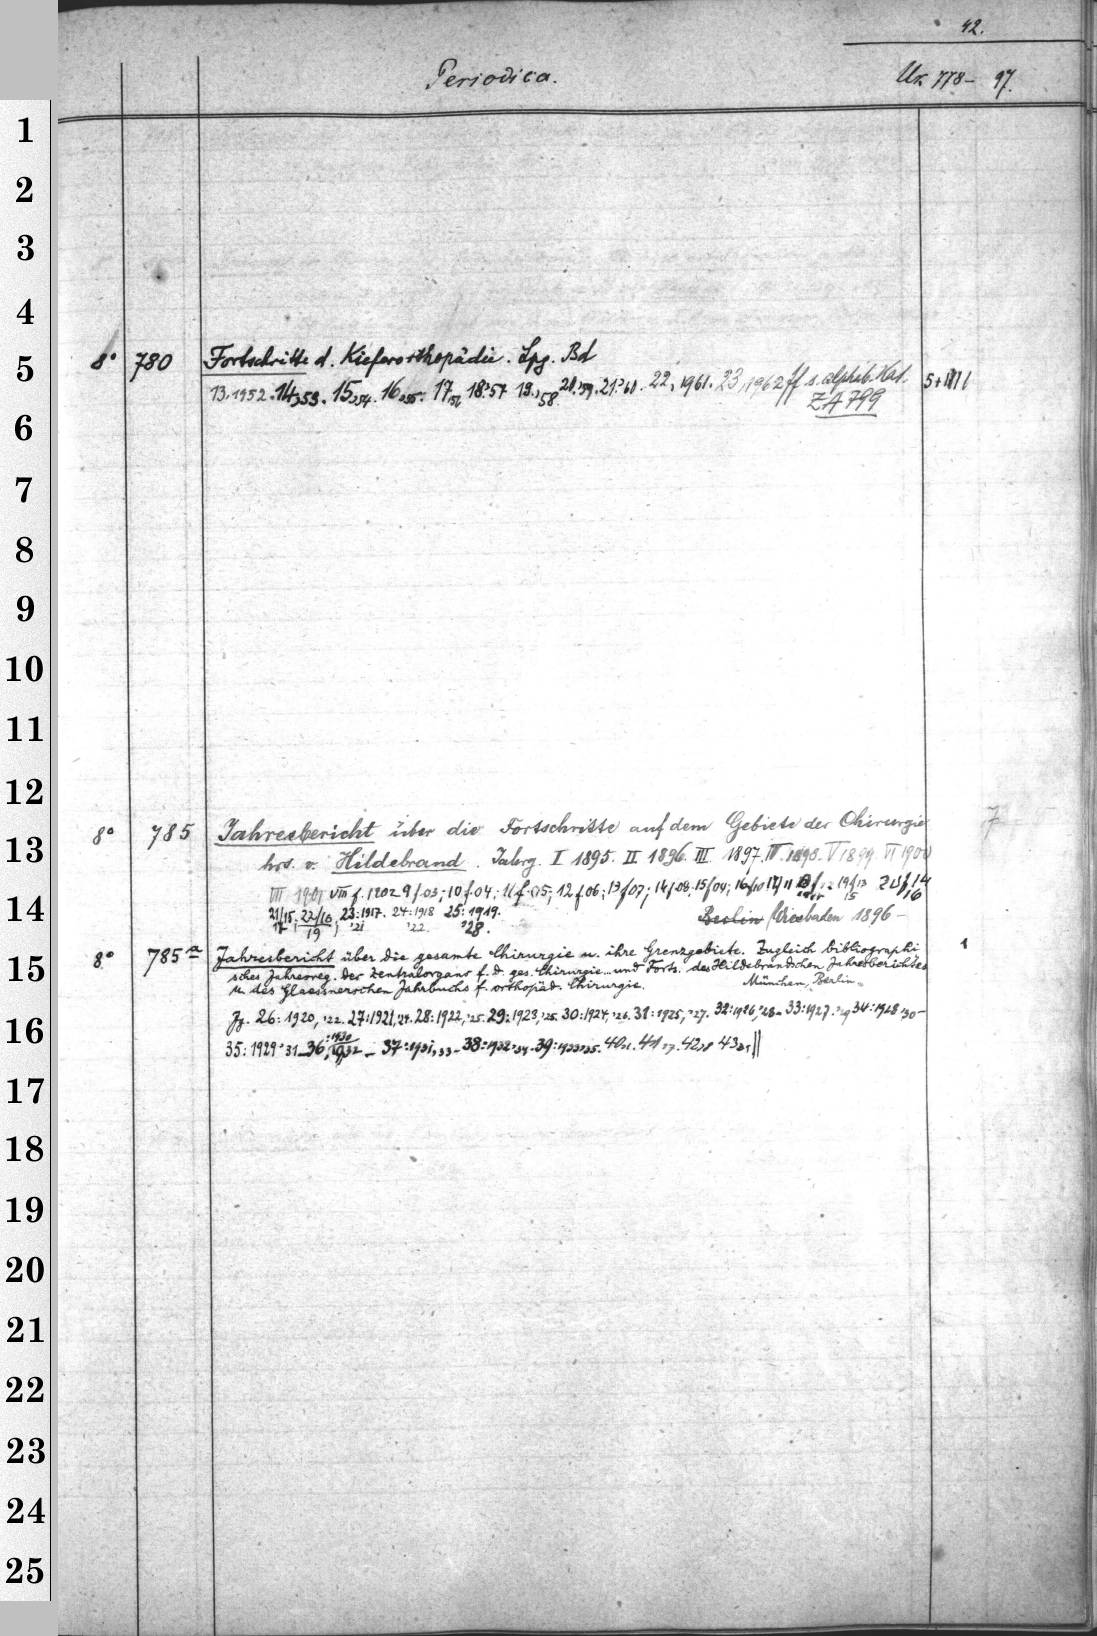 42.
Periodica. Uk 778- 97.
1
2
3
4
5
8° 780 Fortschritte d. Kieferorthopädie. Lpz. Bd
13,1952. 14,53. 15,54. 16,55. 17,56 18,'57 19,'58. 20,'59. 21,'60. 22, 1961. 23, 1962 ff s. alphab. Kat.
ZA 799
6
7
8
9
10
11
12
8° 785 Jahresbericht über die Fortschritte auf dem Gebiete der Chirurgie
13
hrs. v. Hildebrand. Jahrg. I 1895. II 1896. III 1897. IV 1898. V 1899. VI 1900
VII 1901 VIII f. 1902 9 f. 03; 10 f. 04; 11 f. 05; 12 f 06; 13 f 07; 14 f 08. 15 f 09; 16 f 10 17 f 11
14
21/15. 22/16, 23:1917. 24:1918 25:1919. Berlin Wiesbaden 1896-
17 19 '21 '22. '28.
8° 785a Jahresbericht über die gesamte Chirurgie u. ihre Grenzgebiete. Zugleich bibliographi
15
sches Jahresreg. der Zentralorgane f. d. ges. Chirurgie... und Forts. des Hildebrandschen Jahresberichtes
u. des Glaessnerschen Jahrbuchs f. orthopäd. Chirurgie. München, Berlin
Jg. 26: 1920, '22. 27:1921,'24. 28:1922,'25. 29:1923,'25. 30:1924,'26. 31:1925,'27. 32:1926,'28- 33:1927.'29 34:1928 '30-
16
35:1929 '31- 36:1930 1932 - 37:1931,33- 38:1932 '34. 39:1933 35. 40 41 42 43
17
18
19
20
21
22
23
24
25